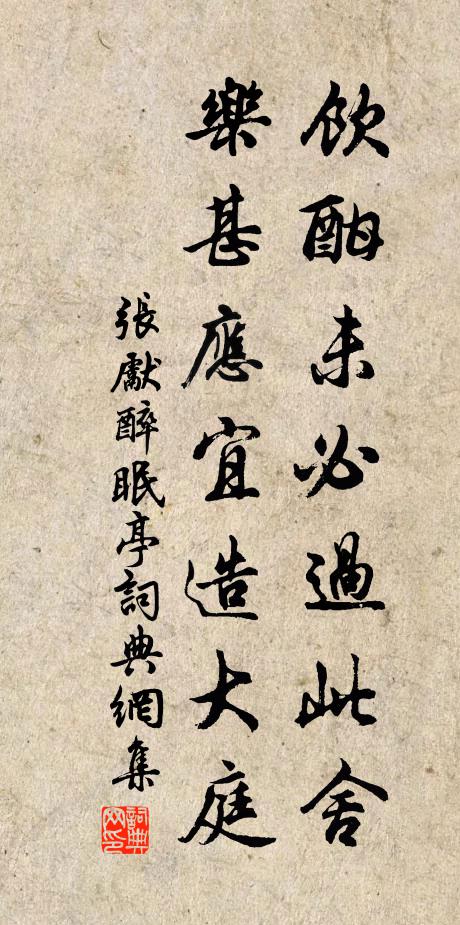 飲酣未必過此舍
樂甚應宜造大庭
張獻醉眠亭詞典網集
詞典网印